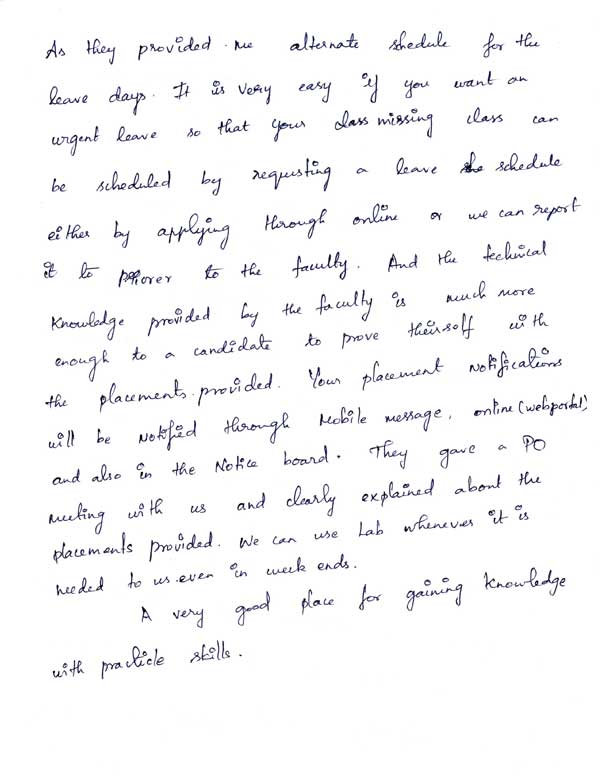 As they provided me alternate shedule for the
leave days. It is very easy if you want an
urgent leave so that your class missing class can
be scheduled by requsting a leave schedule
either by applying through online or we can report
it to to the faculty. And the technical
knowledge provided by the faculty is much more
enough to a candidate to prove theirself with
the placements provided. Your placement notifications
will be notified through Mobile message, online (webportal)
and also in the Notice board. They gave a PO
meeting with us and clearly explained about the
placements provided. We can use Lab whenever it is
needed to us even in week ends.
A very good place for gaining knowledge
with practicle skills.